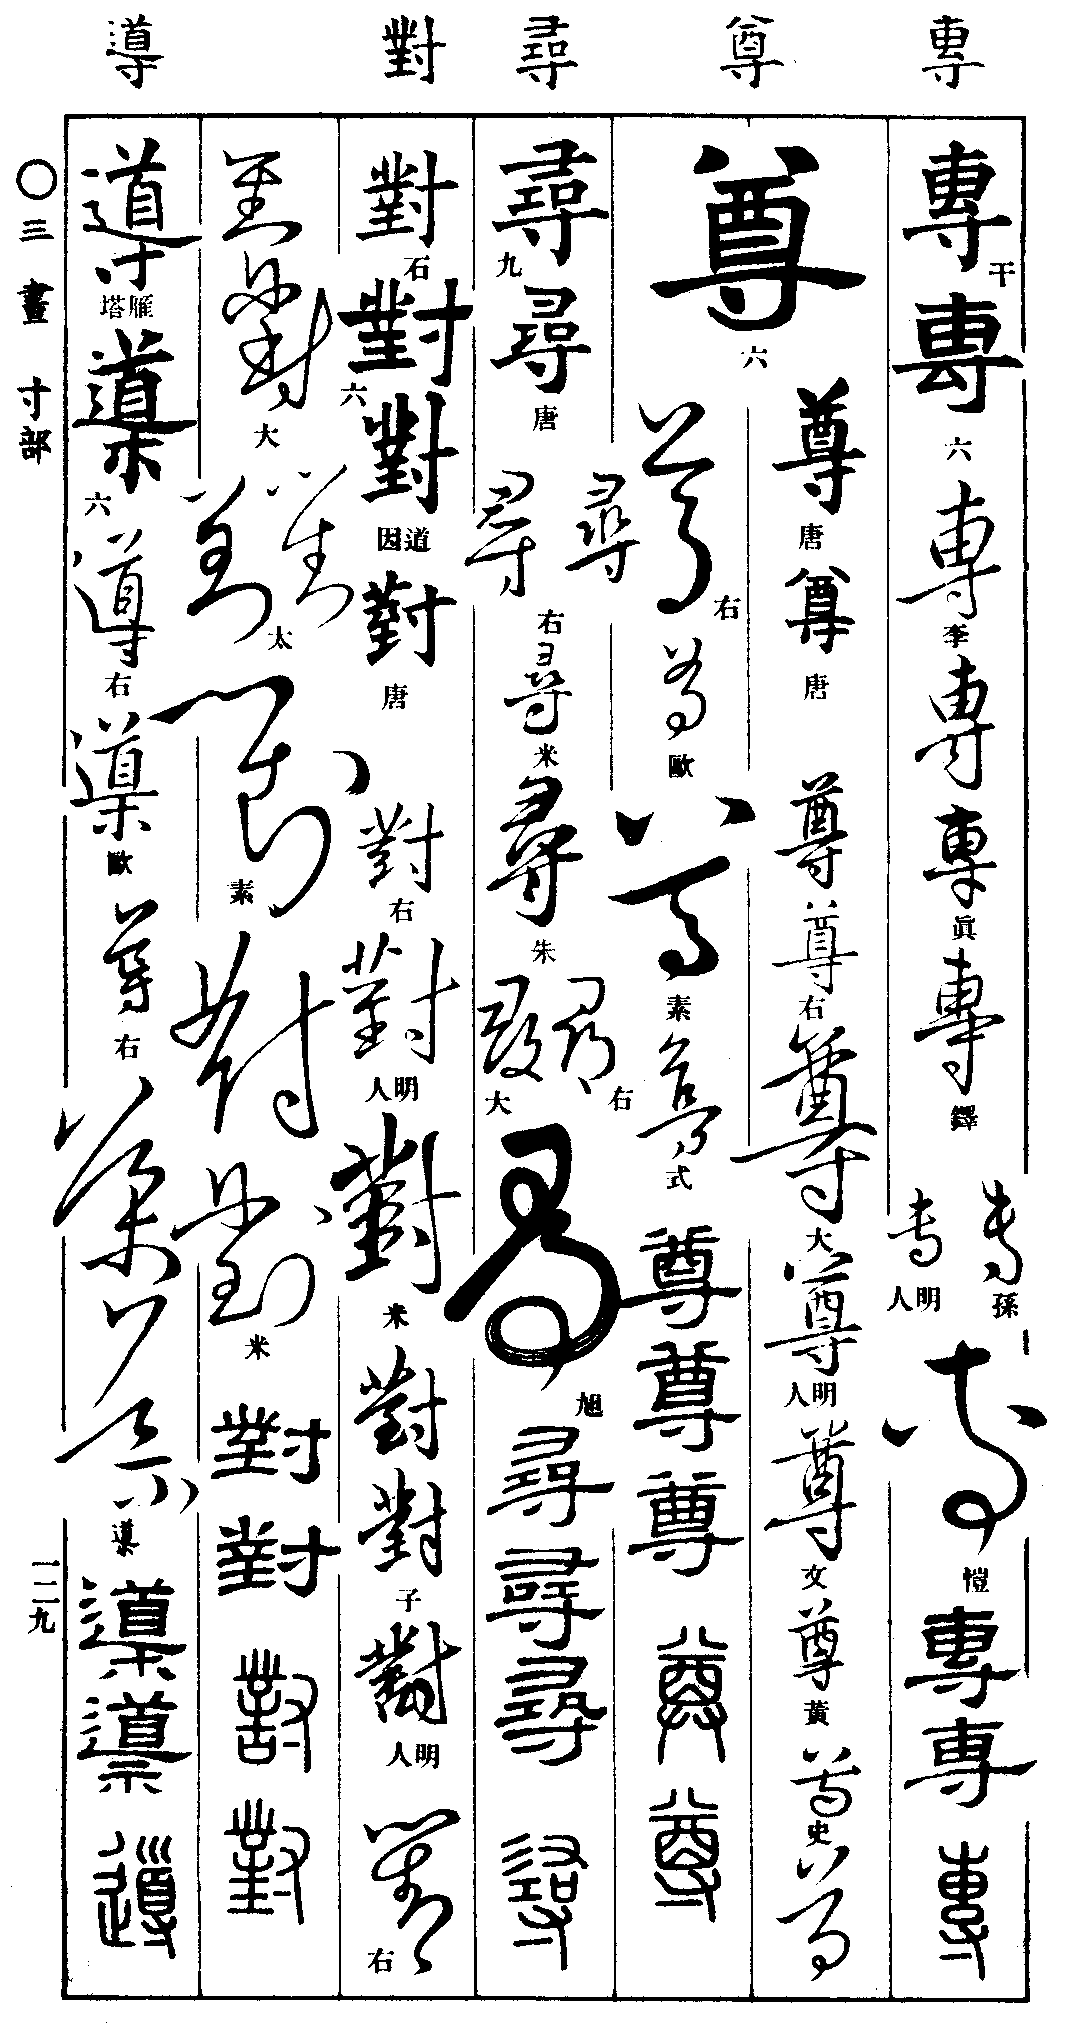 專 尊 尋 對 導
專 干
專 六
專 李
專
專 眞
專 鐸
專 孫
專 明人
專 愷
專
專
專
尊 六
尊 唐
尊 唐
尊
尊 右
尊 大
尊 明人
尊 文
尊 黃
尊 史
尊
尊 右
尊 歐
尊 素
尊 式
尊
尊
尊
尊
尊
尋 九
尋 唐
尋
尋 右
尋 米
尋 朱
尋 右
尋 大
尋 旭
尋
尋
尋
尋
對 石
對 六
對 道因
對 唐
對 右
對 明人
對 米
對
對 子
對 明人
對 右
對
對 大
對
對 太
對 素
對
對 米
對
對
對
對
導 雁塔
導 六
導 右
導 歐
導 右
導
導
導
導
導
〇三畫 寸部
一二九